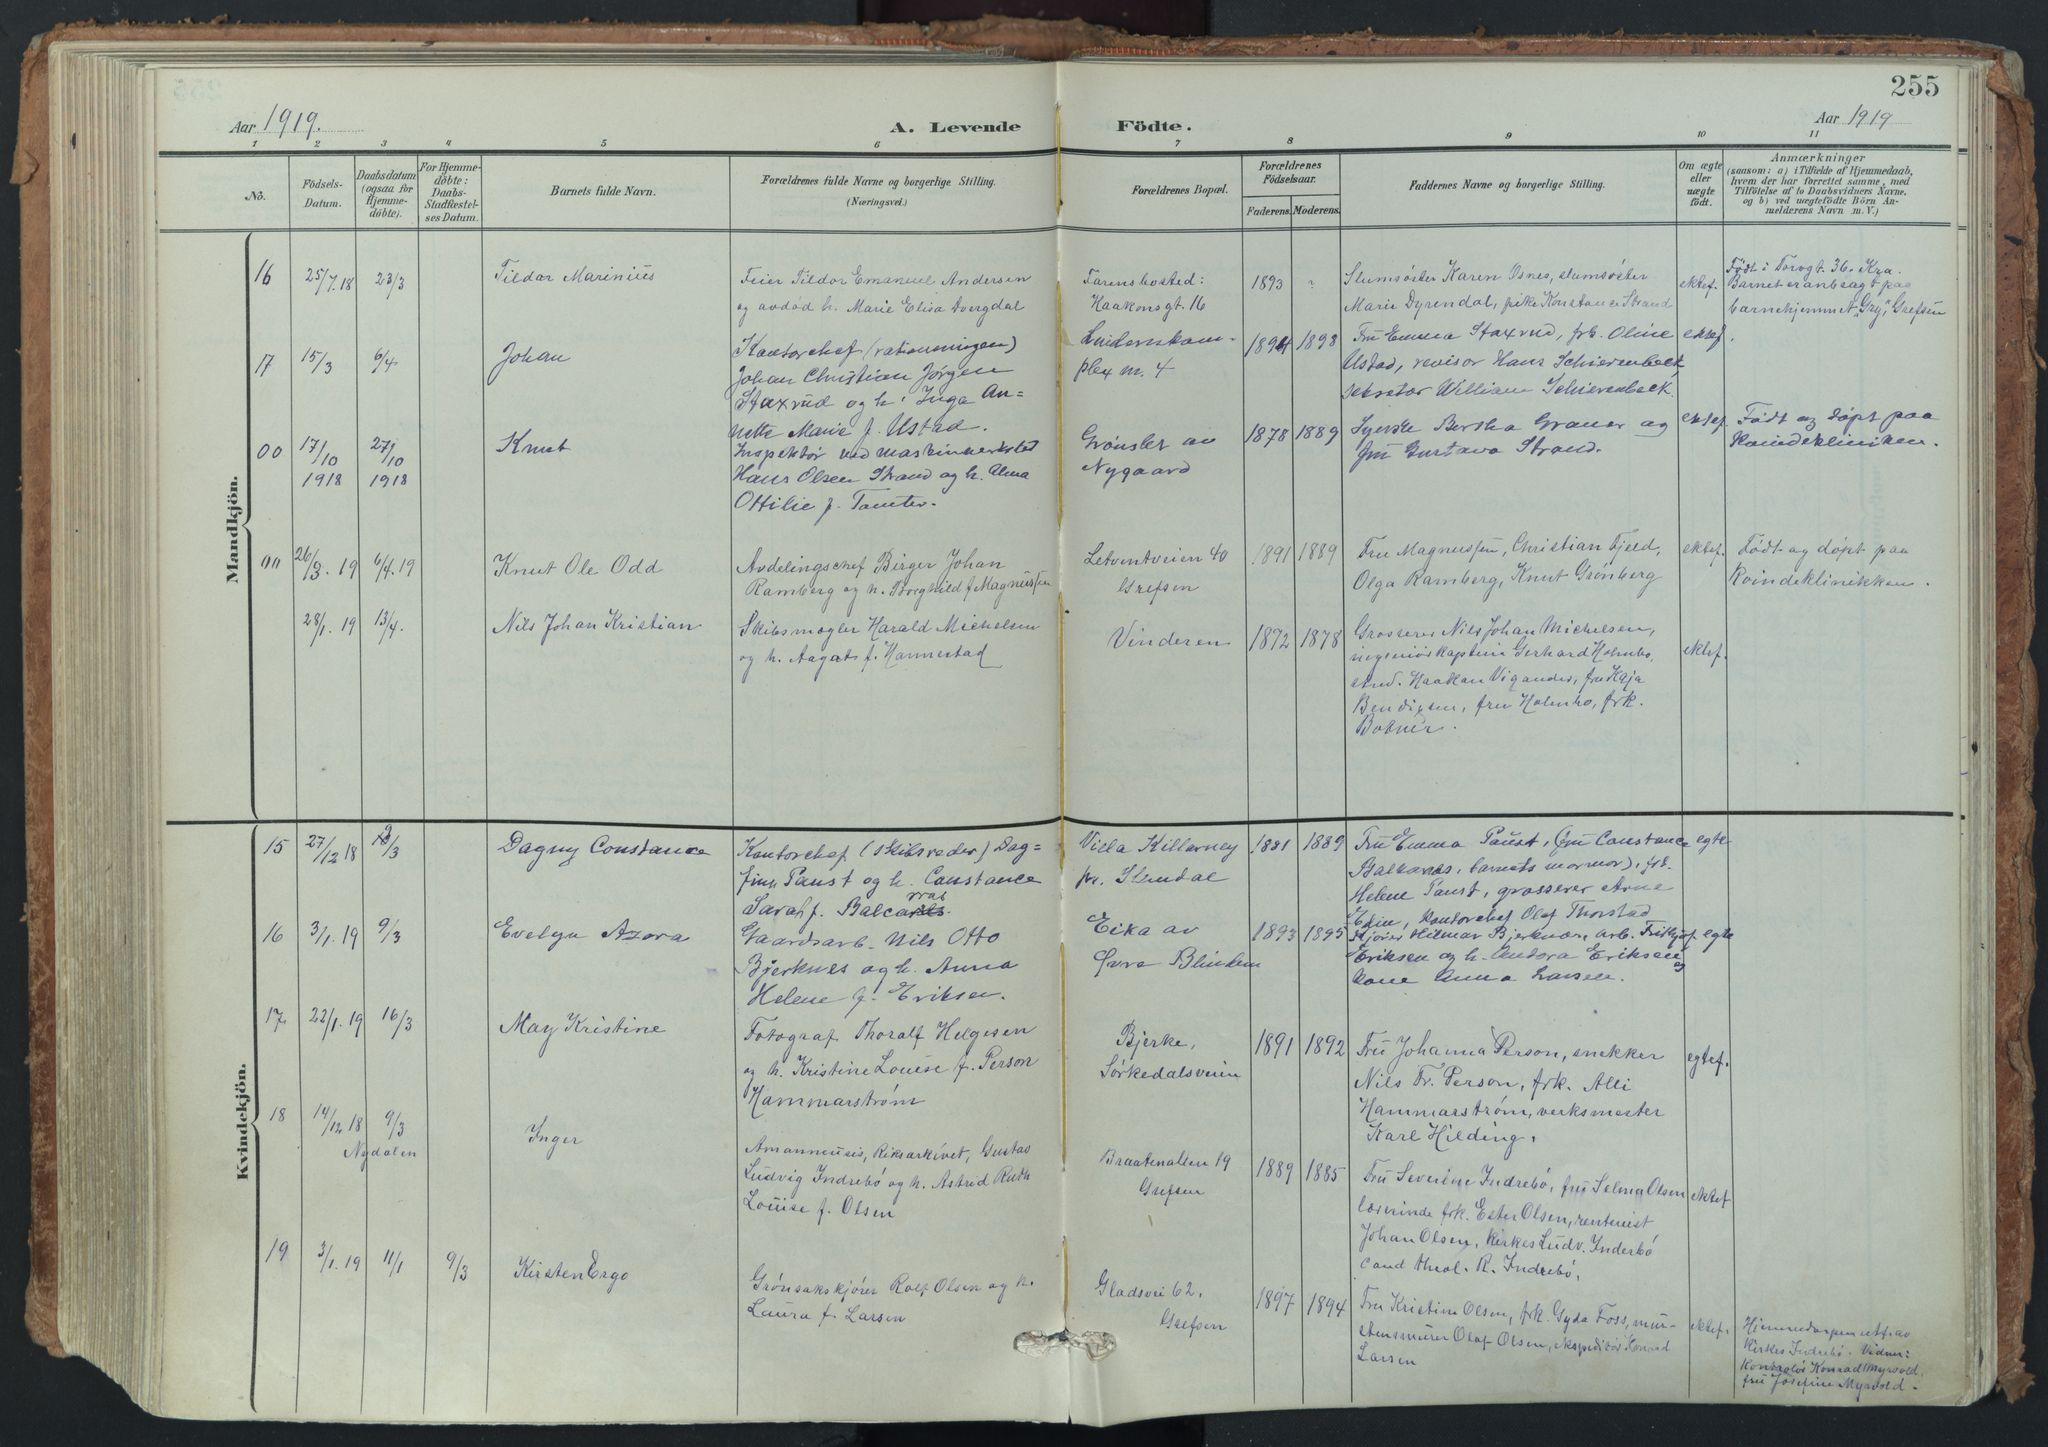 255
Aar 1919.
A. Levende Födte.
Aar 1919
1 2 3 4 5 6 7 8 9 10 11
No.
Födsels-
Datum.
Daabsdatum
(ogsaa for
Hjemme-
döbte).
For Hjemme-
döbte:
Daabs-
Stadfæstel-
ses Datum.
Barnets fulde Navn.
Forældrenes fulde Navne og borgerlige Stilling.
(Næringsvei.)
Forældrenes Bopæl.
Forældrenes
Födselsaar.
Faderens. Moderens.
Faddernes Navne og borgerlige Stilling.
Om ægte
eller
uægte
födt.
Anmærkninger
(saasom: a) i Tilfælde af Hjemmedaab,
hvem der har forrettet samme, med
Tilföielse af to Daabsvidners Navne,
og b) ved uægtefödte Börn An-
melderens Navn m. V.)
Mandkjön.
16 25/7.18 23/3
Tildar Marinius
Feier Tildor Emanuel Andersen
og avdød h. Marie Elisa Dvergdal
Farens bosted:
Haakonsgt. 16
1893 ?
Slumsøster Karen Osnes, slumsøster
Marie Dyrendal, pike Konstance Strand
ektef.
Født i Torvgt. 36. Kra.
Barnet er anbragt paa
barnehjemmet "Gry", Grefsen
17 15/3 6/4
Johan
Kontorchef (rationeringen)
Johan Christian Jørgen
Staxrud og h. Inga An=
nette Marie f. Ustad.
Lindernkom-
plex nr. 4
1894 1898
Fru Emma Staxrud, frk. Oline
Ustad, revisor Hans Schierenbeck,
sekretær William Schierenbeck.
ektef.
00 17/10 1918 27/10 1918
Knut
Inspektør ved mask.inverksted
Hans Olsen Strand og h. Alma
Ottilie f. Tamter.
Grønsler av
Nygaard
1878 1889
Syerske Bertha Graner og
fru Gustava Strand.
ektef.
Født og døpt paa
Kvindekliniken.
00 26/3. 19 6/4.19
Knut Ole Odd
Avdelingschef Birger Johan
Ramberg og h. Borghild f. Magnussen
Letventveien 40
Grefsen
1891 1889
Fru Magnussen, Christian Fjeld,
Olga Ramberg, Knut Grønberg
ektef.
Født og døpt paa
Kvindeklinikken.
28/1. 19 13/4.
Nils Johan Kristian
Skibsmægler Harald Michelsen
og h. Aagot f. Hannestad
Vinderen
1872 1878
Grosserer Nils Johan Michelsen,
ingeniørkaptein Gerhard Holmbo,
stud. Haakon Vigander, fru Kaja
Bendixen, fru Holmbo, frk.
ektef.
Kvindekjön.
15 27/12 18 2/3
Dagny Constance
Kontorchef (skibsreder) Dag=
finn Paust og h. Constance
Sarah f. Balcarras
Villa Killarney
pr. Slemdal
1881 1889
Fru Emma Paust, (fru Constance
Balkarres, barnets mormor), frk.
Helene Paust, grosserer Arne
Edin, kontorchef Olaf Thorstad
egte
16 3/1. 19 9/3
Evelyn Azora
Gaardsarb. Nils Otto
Bjerknes og h. Anna
Helene f. Eriksen.
Eika av
Øvre Blindern
1893 1895
Kjører Hilmar Bjerknæs, arb. Fridtjof
Eriksen og h. Andora Eriksen og
kone Anna Larsen.
egte
17 22/1. 19 16/3
May Kristine
Fotograf Thoralf Helgesen
og h. Kristine Louise f. Person
Hammarstrøm
Bjerke,
Sørkedalsveien
1891 1892
Fru Johanna Person, snekker
Nils Fr. Person, frk. Alli
Hammarstrøm, verksmester
Karl Hilding.
egtef.
18 14/12 18 9/3
Nydalen
Inger
Amanuensis, Riksarkivet, Gustav
Ludvig Indrebø og h. Astrid Ruth
Louise f. Olsen
Braatenalleen 19
Grefsen
1889 1885
Fru Severine Indrebø, fru Selma Olsen
lærerinde frk. Ester Olsen, rentenist
Johan Olsen, Kirkes Ludv. Inderbø
cand theol. R. Indrebø,
ektef.
19 3/1. 19 11/1 9/3
Kirsten Ergo
Grønsakskjører Rolf Olsen og h.
Laura f. Larsen
Gladsvei 62,
Grefsen
1897 1894
Fru Kristine Olsen, frk. Gyda Foss, mur-
stensmurer Olaf Olsen, ekspeditør Konrad
Larsen
ektef.
Hjemmedaapen utf. av
Kirkes Indrebø. Vidner:
Kontrolør Konrad Myrvold,
fru Josefine Myrvold.